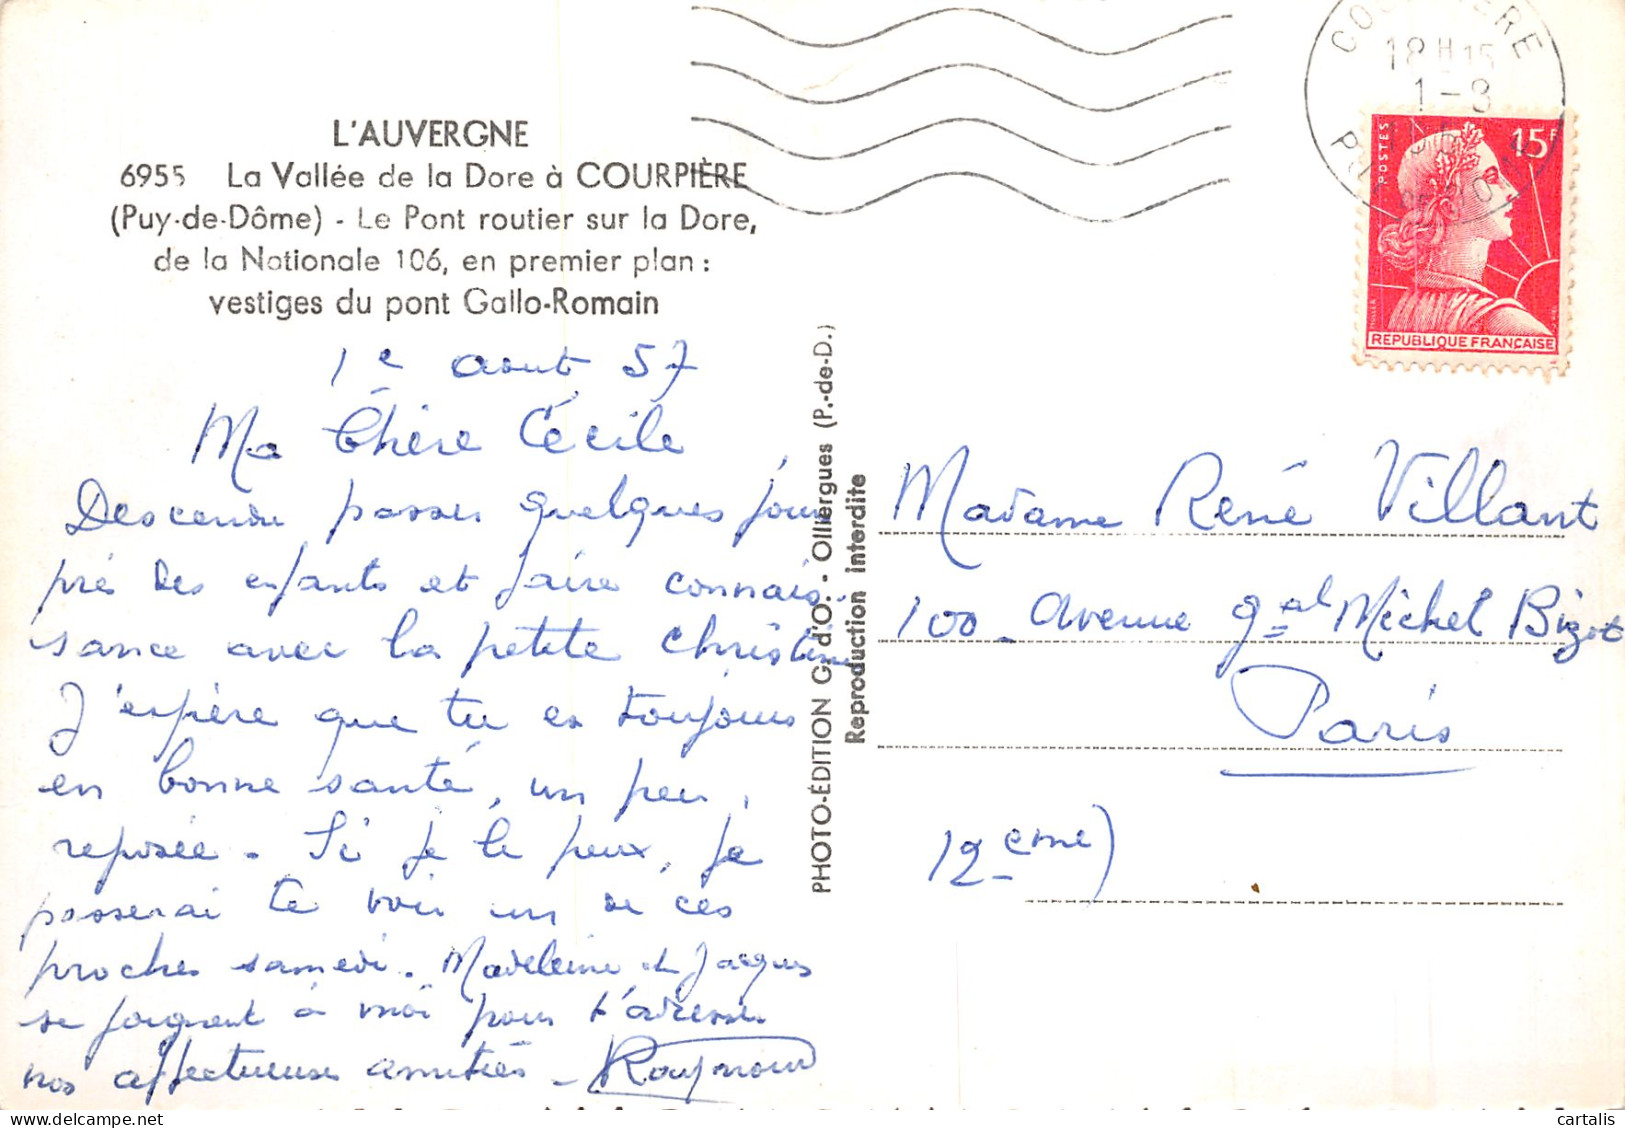 L'AUVERGNE
6955 La Vallée de la Dore à COURPIÈRE
(Puy-de-Dôme) - Le Pont routier sur la Dore,
de la Nationale 106, en premier plan :
vestiges du pont Gallo-Romain
1e août 57
Ma Chère Cécile
Descendu passer quelques jours
près des enfants et faire connais-
sance avec la petite Christine
J'espère que tu es toujours
en bonne santé, un peu
reposée. Si je le peux, je
passerai te voir un de ces
proches samedi. Madeleine et Jacques
se joignent à moi pour t'adresser
nos affectueuses amitiés - Raymond
PHOTO-ÉDITION G. d'O. - Olliergues (P.-de-D.)
Reproduction interdite
COURPIERE
18H15
1-8
POSTES
15F
REPUBLIQUE FRANÇAISE
Madame René Villant
100 - Avenue gal Michel Bizot
Paris
12eme)
cartalis